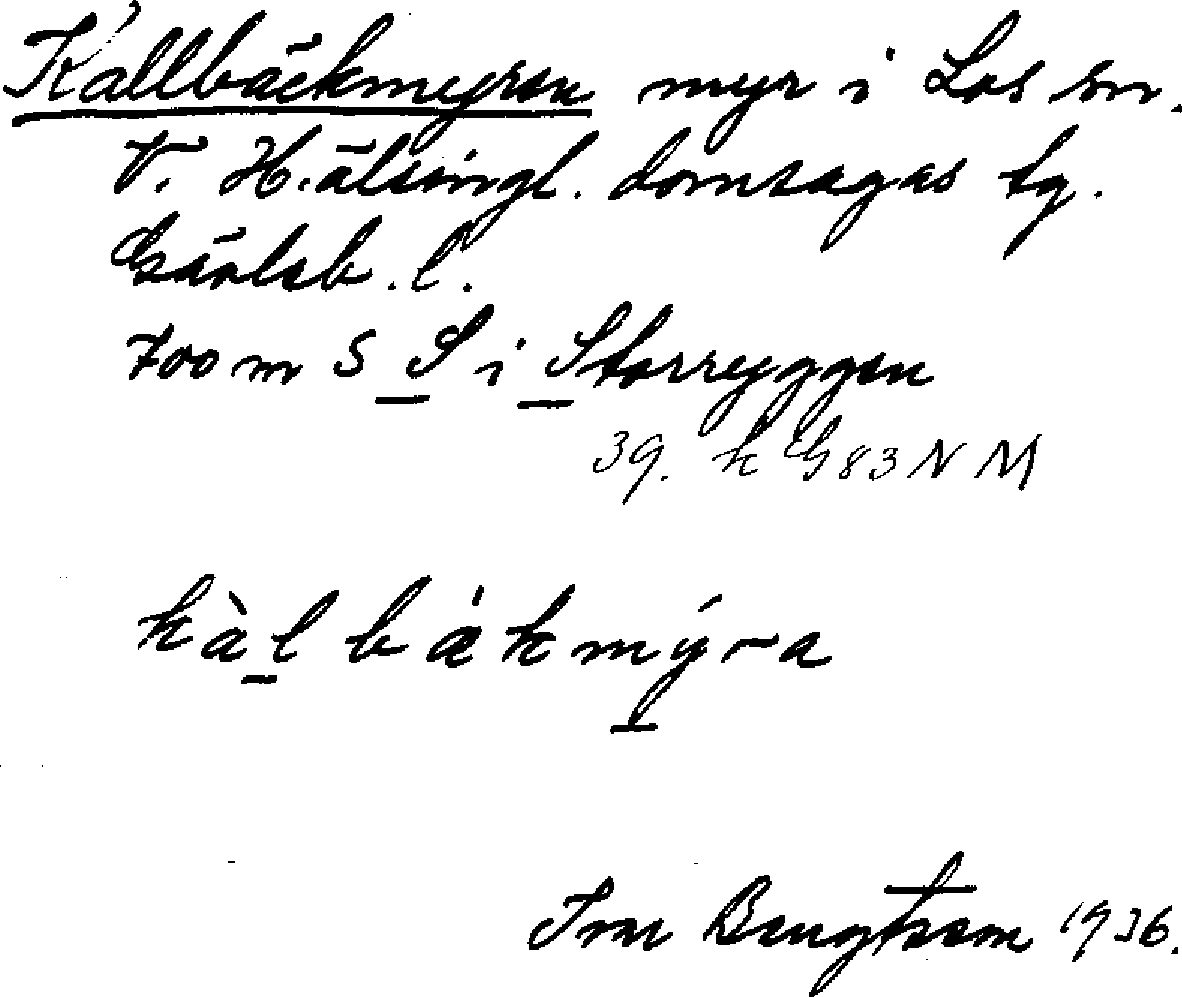 Kallbäckmyren myr i Los sn.
V. Hälsingl. domsagas tg.
Gävleb. l.
700 m S S i Storryggen
39. k G 83 N M
kàl bákmýra
Ivar Bengtsson 1936.